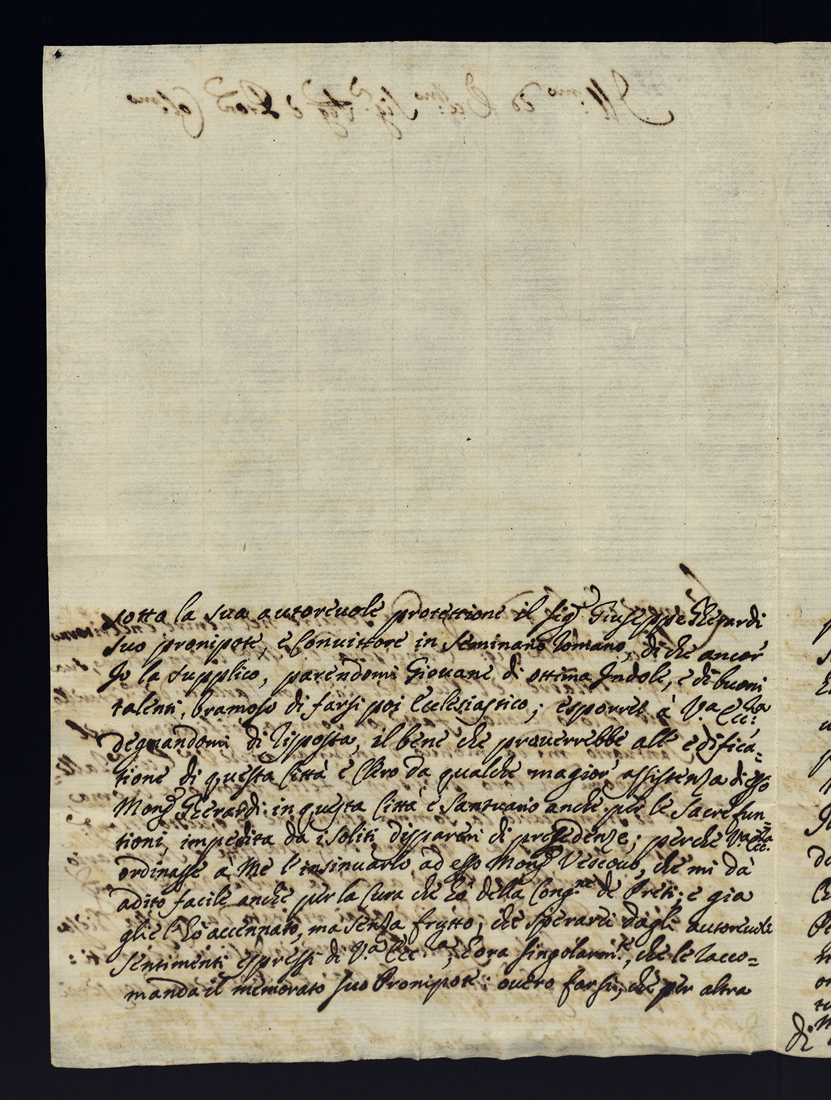 sotto la sua autoreuole protettione il Sig.r Giuseppe Gherardi
suo pronipote, è Conuittore in Seminario Romano, di che ancor
Io la supplico, parendomi Giouane di ottima Indole, e di buoni
talenti, bramoso di farsi poi Ecclesiastico; esporrei à V.a Ecc.za
degnandomi di risposta, il bene che prouerrebbe all' edifica=
tione di questa Città e Clero da qualche magior assistenza di esso
Mons.r Gherardi in questa Città e Santuario anche per le Sacre fun=
tioni, impedita da i soliti dispareri di precedenze; perche V.a Ecc.za
ordinasse à Me l'insinuarlo ad esso Mons.r Vescouo, che mi dà
adito facile anche per la Cura che hò della Cong.ne de Preti; e gia
glie l'hò accennato, ma senza frutto; che sperarei dagli autoreuole
sentimenti espressi di V.a Ecc.za, hora singolarm.te, che le racco=
manda il memorato suo Pronipote: ouero farsi, che per altra